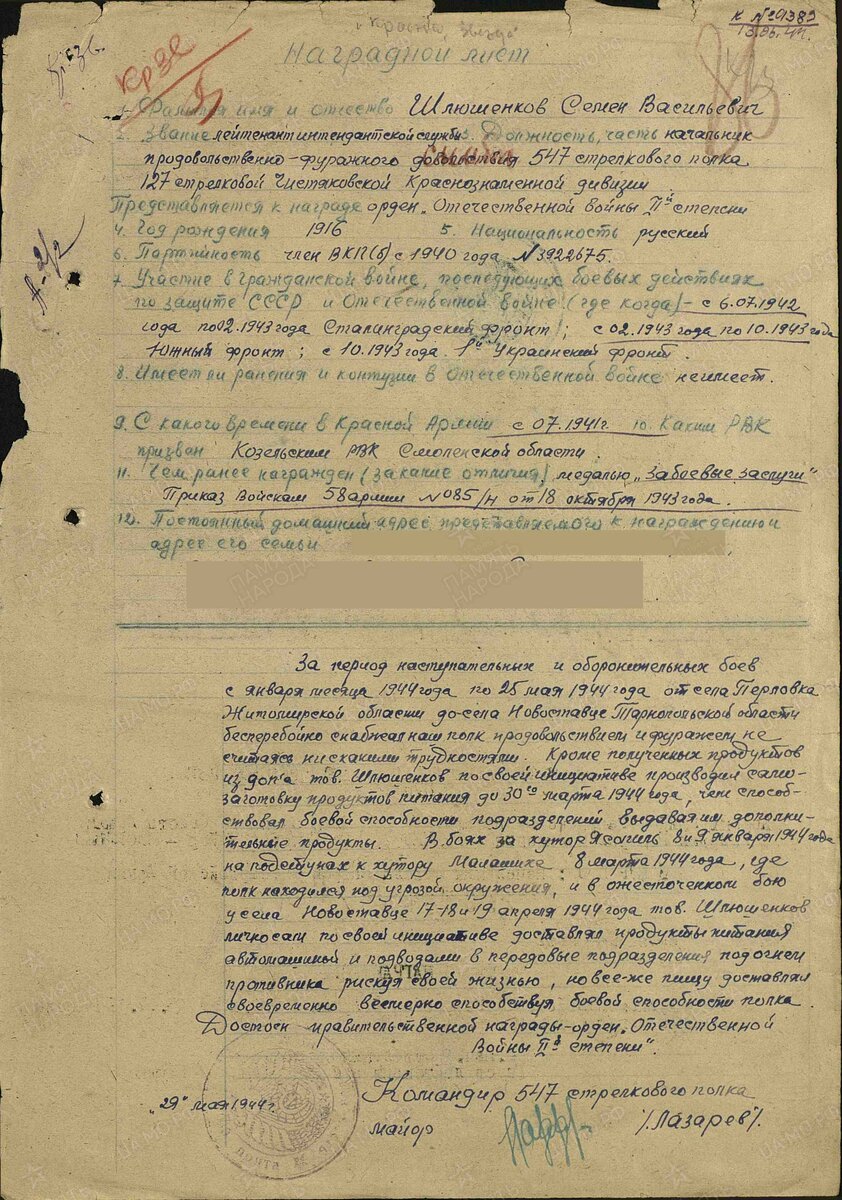 к №01389
13.06.44.
"Красная звезда"
КрЗв
Наградной лист
1. Фамилия имя и отчество Шлюшенков Семен Васильевич
2. Звание лейтенант интендантской службы 3. Должность, часть начальник
продовольственно-фуражного довольствия 547 стрелкового полка
127 стрелковой Чистяковской Краснознаменной дивизии
Представляется к награде орден „Отечественной войны IIй степени
4. Год рождения 1916 5. Национальность русский
6. Партийность член ВКП(б) с 1940 года №3922675.
7. Участие в гражданской войне, последующих боевых действиях
по защите СССР и Отечественной войне (где когда) - с 6.07.1942
года по 02.1943 года Сталинградский фронт; с 02.1943 года по 10.1943 года
Южный фронт; с 10.1943 года 1й Украинский фронт.
8. Имеет ли ранения и контузии в Отечественной войне неимеет.
9. С какого времени в Красной Армии с 07.1941г. 10. Каким РВК
призван Козельским РВК Смоленской области.
11. Чем ранее награжден (за какие отличия) медалью „За боевые заслуги"
Приказ Войскам 58 армии №085/н от 18 октября 1943 года.
12. Постоянный домашний адрес представляемого к награждению и
адрес его семьи
За период наступательных и оборонительных боев
с января месяца 1944 года по 25 мая 1944 года от села Перловка
Житомирской области до села Новоставце Тарнопольской области
бесперебойно снабжал наш полк продовольствием и фуражем не
считаясь нискакими трудкостями. Кроме полученных продуктов
из доп'а тов. Шлюшенков по своей инициативе производил само-
заготовку продуктов питания до 30го марта 1944 года, чем способ-
ствовал боевой способности подразделений, выдавая им дополни-
тельные продукты. В боях за хутор Ясогиль 8 и 9 января 1944 года
на подступах к хутору Малашиха 8 марта 1944 года, где
полк находился под угрозой окружения, и в ожесточенном бою
у села Новоставце 17-18 и 19 апреля 1944 года тов. Шлюшенков
лично сам по своей инициативе доставлял продукты питания
автомашиной и подводами в передовые подразделения под огнем
противника рискуя своей жизнью, но все-же пищу доставлял
своевременно всемерно способствуя боевой способности полка.
Достоен правительственной награды-орден „Отечественной
Войны IIй степени".
"29" мая 1944г. Командир 547 стрелкового полка
майор /Лазарев/.